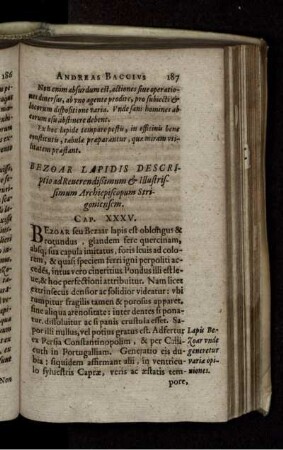 186
ANDREAS BACCIUS 187
Non enim absurdum est, actiones siue operatio-
nes diuersas, ab vno agente prodire, pro subiecti &
locorum dispositione varia. Vnde sani homines ab
eorum esu abstinere debent.
Ex hoc lapide tempore pestis, in officinis bene
constitutis, tabulæ præparantur, quæ miram vti-
litatem præstant.
BEZOAR LAPIDIS DESCRI-
ptio ad Reuerendissimum & Illustris-
simum Archiepiscopum Stri-
goniensem.
CAP. XXXV.
BEZOAR seu Bezar lapis est oblongus &
rotundus, glandem fere quercinam,
absq; sua capula imitatus, foris leuis ad colo-
rem, & quasi speciem ferri igni perpoliti acce-
dés, intus vero cineritius Pondus illi est le-
ue, & hoc perfectioni attribuitur. Nam licet
extrinsecus densior ac solidior videatur: vbi
rumpitur fragilis tamen & porosus apparet,
siue aliqua arenositate: inter dentes si pona-
tur dissoluitur ac si panis crustula esset. Sa-
por illi nullus, vel potius gratus est. Adfertur
ex Persia Constantinopolim, & per
cuth in Portugalliam. Generatio eis du-
bia: siquidem affirmant alii, in ventricu-
lo syluestris Capræ, veris ac æstatis tem-
pore,
Lapis Be-
Zoar vnde
generetur
varia opi-
niones.
Non